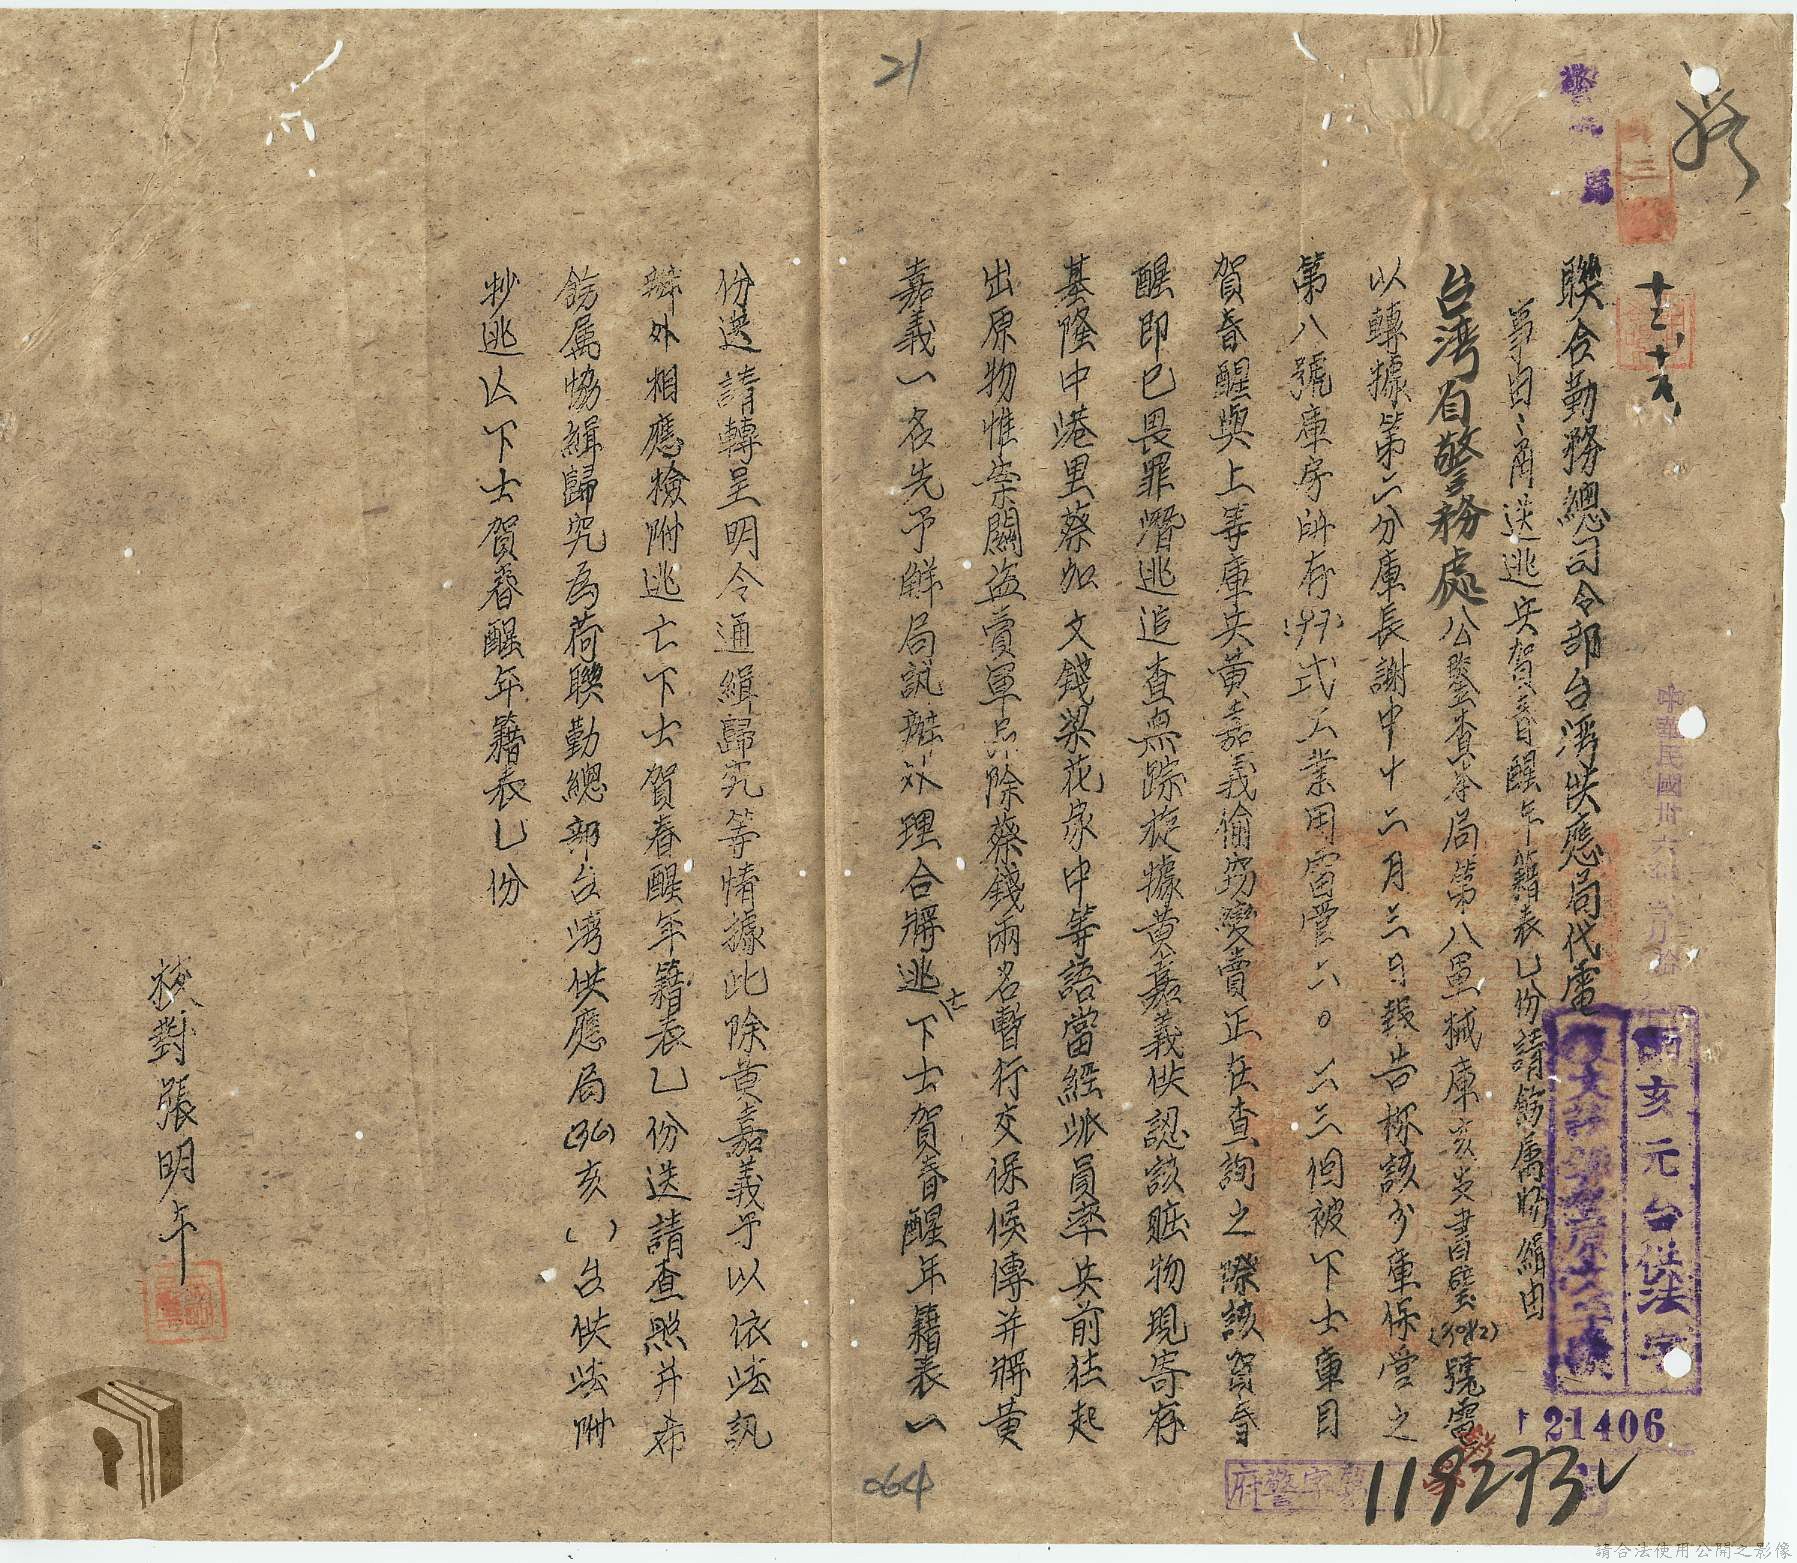 21
三
十二
十六
聯合勤務總司令部台灣供應局代電
事由：為送逃兵賀春醒年籍表乙份請飭屬協緝由
台灣省警務處公鑒查本局第八軍械庫亥支書璧(3082)號電
以轉據第六分庫長謝中十二月三日報告称該分庫保管之
第八號庫房所存(97)式工業用雷管六〇六三個被下士庫目
賀春醒與上等庫兵黃嘉義偷窃變賣正在查詢之際該賀春
醒即已畏罪潛逃追查無踪旋據黃嘉義供認該賍物現寄存
基隆中港里蔡加文錢梁花家中等語當經派員率兵前往起
出原物惟案關盜賣軍品除蔡錢兩名暫行交保候傳并將黃
嘉義一名先予解局訊辦外理合將逃亡下士賀春醒年籍表一
份送請轉呈明令通緝歸究等情據此除黃嘉義予以依法訊
辦外相應檢附逃亡下士賀春醒年籍表乙份送請查照并希
飭屬協緝歸究為荷聯勤總部台灣供應局(36)亥( )台供法附
抄逃亡下士賀春醒年籍表乙份
校對張明午
中華民國卅六年
亥元台供法字
21406
119273
府警字
064
請合法使用公開之影像